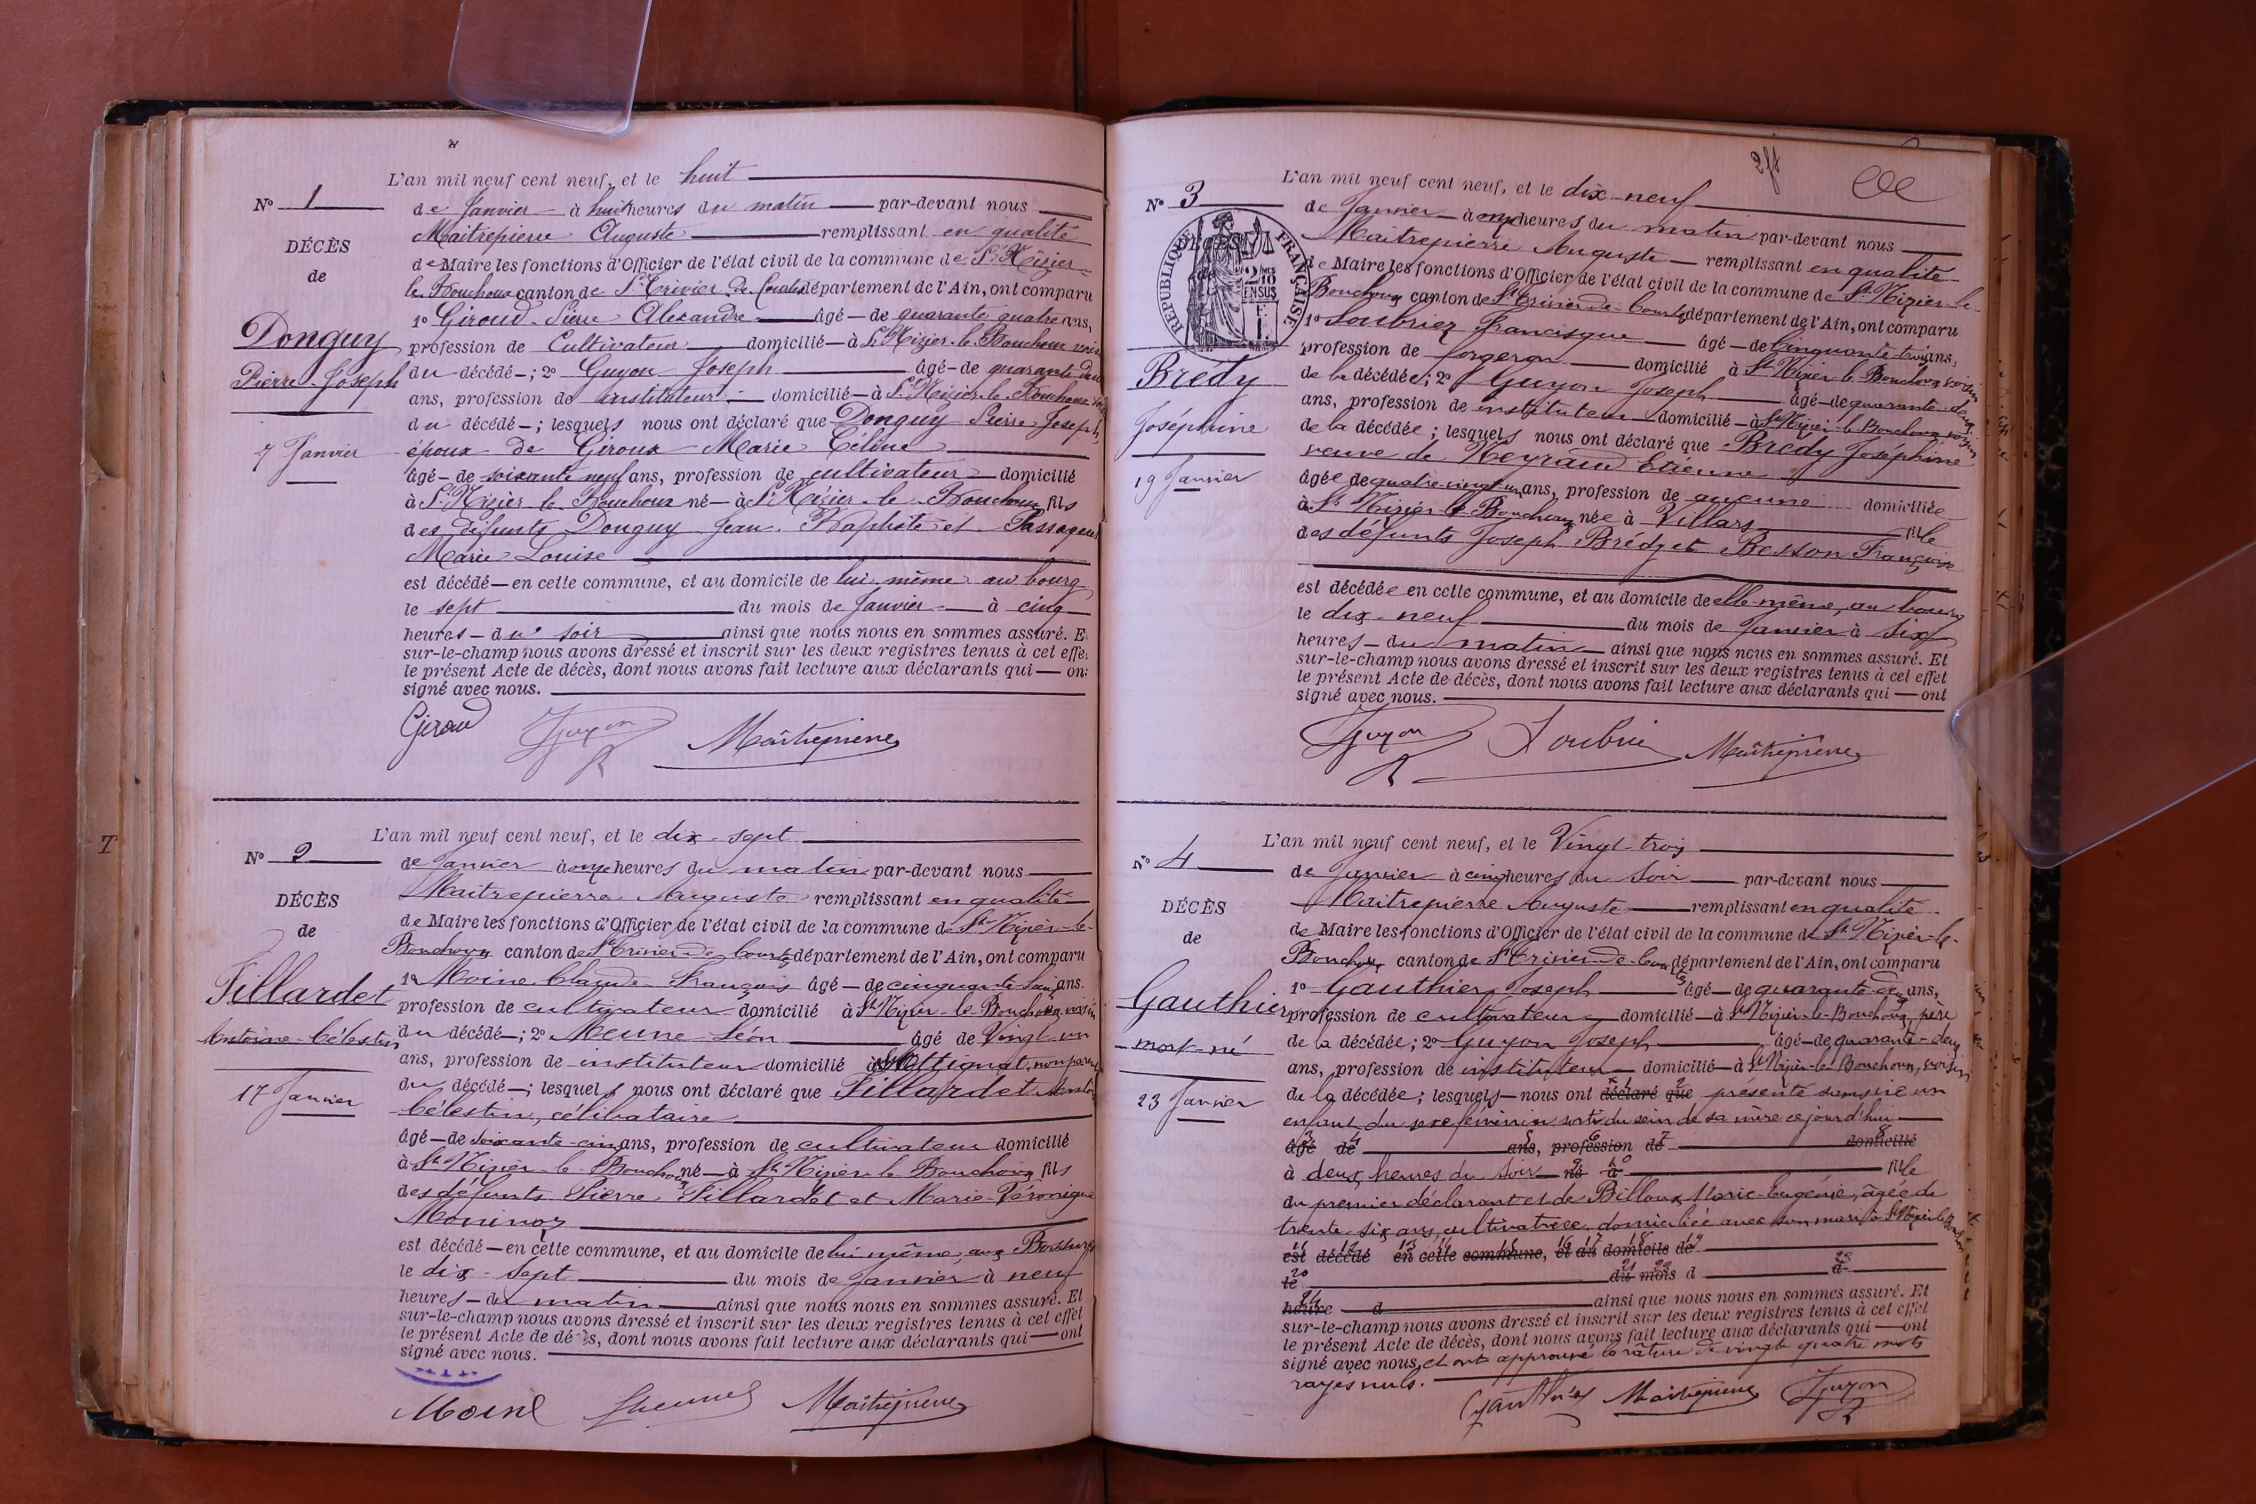 L'an mil neuf cent neuf, et le huit
N° 1
de Janvier à huit heures du matin par-devant nous
Maitrepierre Auguste remplissant en qualité
DÉCÈS
de Maire les fonctions d'Officier de l'état civil de la commune de St Nizier-
de
le Bouchoux canton de St Trivier de Courtes département de l'Ain, ont comparu
1° Giroud Pierre Alexandre âgé de quarante quatre ans,
Donguy
profession de Cultivateur domicilié à St Nizier le Bouchoux voisin
Pierre-Joseph
du décédé ; 2° Guyon Joseph âgé de quarante deux
ans, profession de instituteur domicilié à St Nizier le Bouchoux
du décédé ; lesquels nous ont déclaré que Donguy Pierre Joseph,
7 Janvier
époux de Giroux Marie Céline
âgé de soixante neuf ans, profession de cultivateur domicilié
à St Nizier le Bouchoux né à St Nizier le Bouchoux fils
des défunts Donguy Jean Baptiste et
Marie Louise
est décédé en cette commune, et au domicile de lui même au bourg
le sept du mois de Janvier à cinq
heures du soir ainsi que nous nous en sommes assuré. E
sur-le-champ nous avons dressé et inscrit sur les deux registres tenus à cet effe
le présent Acte de décès, dont nous avons fait lecture aux déclarants qui on
signé avec nous.
Giroud Guyon Maitrepierre
L'an mil neuf cent neuf, et le dix-sept
N° 2
de Janvier à onze heures du matin par-devant nous
Maitrepierre Auguste remplissant en qualité
DÉCÈS
de Maire les fonctions d'Officier de l'état civil de la commune de St Nizier-le-
de
Bouchoux canton de St Trivier-de-Courtes département de l'Ain, ont comparu
1° Moine Claude François âgé de cinquante huit ans
Fillardet
profession de cultivateur domicilié à St Nizier-le-Bouchoux, voisin
Antoine-Célestin
du décédé ; 2° Meune Léon âgé de Vingt un
ans, profession de instituteur domicilié à Attignat, non parent
du décédé ; lesquels nous ont déclaré que Fillardet Antoine
17 Janvier
Célestin, célibataire
âgé de soixante-cinq ans, profession de cultivateur domicilié
à St Nizier-le-Bouchoux né à St Nizier le Bouchoux fils
des défunts Pierre Fillardet et Marie-Véronique
est décédé en cette commune, et au domicile de lui même, aux
le dix-sept du mois de Janvier à neuf
heures du matin ainsi que nous nous en sommes assuré. Et
sur-le-champ nous avons dressé et inscrit sur les deux registres tenus à cet effet
le présent Acte de décès, dont nous avons fait lecture aux déclarants qui ont
signé avec nous.
Moine Meune Maitrepierre
L'an mil neuf cent neuf, et le dix-neuf
N° 3
de Janvier à onze heures du matin par-devant nous
Maitrepierre Auguste remplissant en qualité
RÉPUBLIQUE FRANÇAISE
2/10 EN SUS
de Maire les fonctions d'Officier de l'état civil de la commune de St Nizier-le-
Bouchoux canton de St Trivier-de-Courtes département de l'Ain, ont comparu
1° Loubriez Francisque âgé de Cinquante-trois ans,
profession de forgeron domicilié à St Nizier le Bouchoux voisin
Brédy
de la décédée ; 2° Guyon Joseph âgé de quarante-deux
ans, profession de instituteur domicilié à St Nizier-le-Bouchoux voisin
Joséphine
de la décédée ; lesquels nous ont déclaré que Brédy Joséphine
veuve de Neyraud Etienne
19 Janvier
âgée de quatre-vingt-un ans, profession de aucune domiciliée
à St Nizier-le-Bouchoux née à Villars fille
des défunts Joseph Brédy et Besson Françoise
est décédée en cette commune, et au domicile de elle-même, au bourg
le dix-neuf du mois de Janvier à six
heures du matin ainsi que nous nous en sommes assuré. Et
sur-le-champ nous avons dressé et inscrit sur les deux registres tenus à cet effet
le présent Acte de décès, dont nous avons fait lecture aux déclarants qui ont
signé avec nous.
Guyon Loubriez Maitrepierre
L'an mil neuf cent neuf, et le Vingt-trois
N° 4
de Janvier à cinq heures du soir par-devant nous
Maitrepierre Auguste remplissant en qualité
DÉCÈS
de Maire les fonctions d'Officier de l'état civil de la commune de St Nizier-le-
de
Bouchoux canton de St Trivier-de-Courtes département de l'Ain, ont comparu
1° Gauthier Joseph âgé de quarante-cinq ans,
Gauthier
profession de cultivateur domicilié à St Nizier-le-Bouchoux, père
mort-né
de la décédée ; 2° Guyon Joseph âgé de quarante-deux
ans, profession de instituteur domicilié à St Nizier-le-Bouchoux, voisin
de la décédée ; lesquels nous ont déclaré que présenté sans vie un
23 Janvier
enfant du sexe féminin sorti du sein de sa mère ce jourd'hui
âgé de ans, profession de domicilié
à deux heures du soir né à fille
du premier déclarant et de Billoux Marie-Eugénie, âgée de
trente-six ans, cultivatrice, domiciliée avec son mari à St Nizier le Bouchoux
est décédé en cette commune, et au domicile de
le du mois d à
heure d ainsi que nous nous en sommes assuré. Et
sur-le-champ nous avons dressé et inscrit sur les deux registres tenus à cet effet
le présent Acte de décès, dont nous avons fait lecture aux déclarants qui ont
signé avec nous, et ont approuvé la rature de vingt quatre mots
rayés nuls.
Gauthier Maitrepierre Guyon